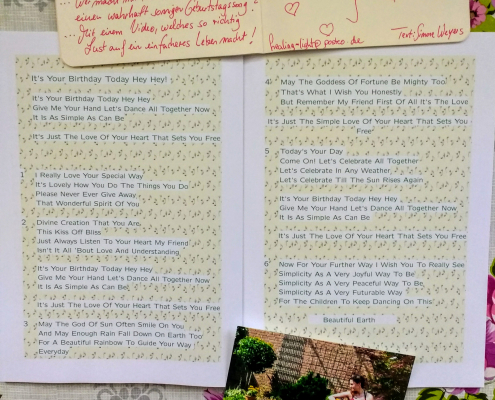 einen wahrhaft sonnigen Geburtstagssong
Mit einem Video, welches so richtig
Lust auf ein einfacheres Leben macht!
Text: Simone Weyers
It's Your Birthday Today Hey Hey!
It's Your Birthday Today Hey Hey
Give Me Your Hand Let's Dance All Together Now
It Is As Simple As Can Be
It's Just The Love Of Your Heart That Sets You Free
1 I Really Love Your Special Way
It's Lovely How You Do The Things You Do
Please Never Ever Give Away
That Wonderful Spirit Of You
2 Divine Creation That You Are
This Kiss Off Bliss
Just Always Listen To Your Heart My Friend
Isn't It All 'Bout Love And Understanding
It's Your Birthday Today Hey Hey
Give Me Your Hand Let's Dance All Together Now
It Is As Simple As Can Be
It's Just The Love Of Your Heart That Sets You Free
3 May The God Of Sun Often Smile On You
And May Enough Rain Fall Down On Earth Too
For A Beautiful Rainbow To Guide Your Way
Everyday
4 May The Goddess Of Fortune Be Mighty Too
That's What I Wish You Honestly
But Remember My Friend First Of All It's The Love
It's Just The Simple Love Of Your Heart That Sets You
Free
5 Today's Your Day
Come On! Let's Celebrate All Together
Let's Celebrate In Any Weather
Let's Celebrate Till The Sun Rises Again
It's Your Birthday Today Hey Hey
Give Me Your Hand Let's Dance All Together Now
It Is As Simple As Can Be
It's Just The Love Of Your Heart That Sets You Free
6 Now For Your Further Way I Wish You To Really See
Simplicity As A Very Joyful Way To Be
Simplicity As A Very Peaceful Way To Be
Simplicity As A Very Futurable Way
For The Children To Keep Dancing On This
Beautiful Earth